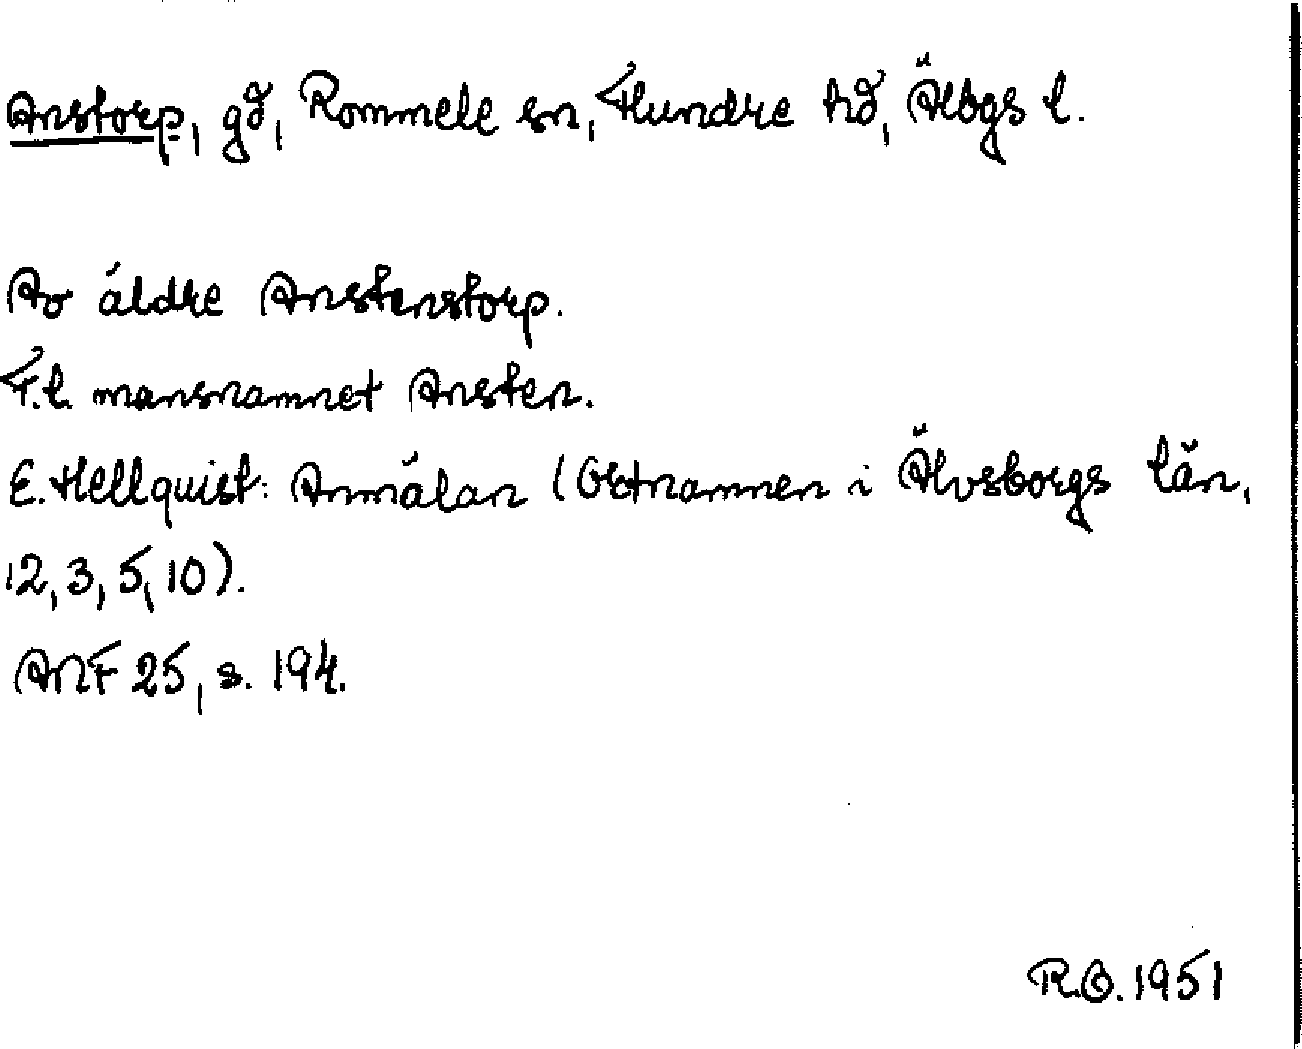 Anstorp, gd, Rommele sn, Flundre hd, Älvbgs l.
Av äldre Anstenstorp.
F.l. mansnamnet Ansten.
E. Hellquist: Anmälan (Ortnamnen i Älvsborgs län,
12, 3, 5, 10).
ANF 25, s. 194.
R.O. 1951